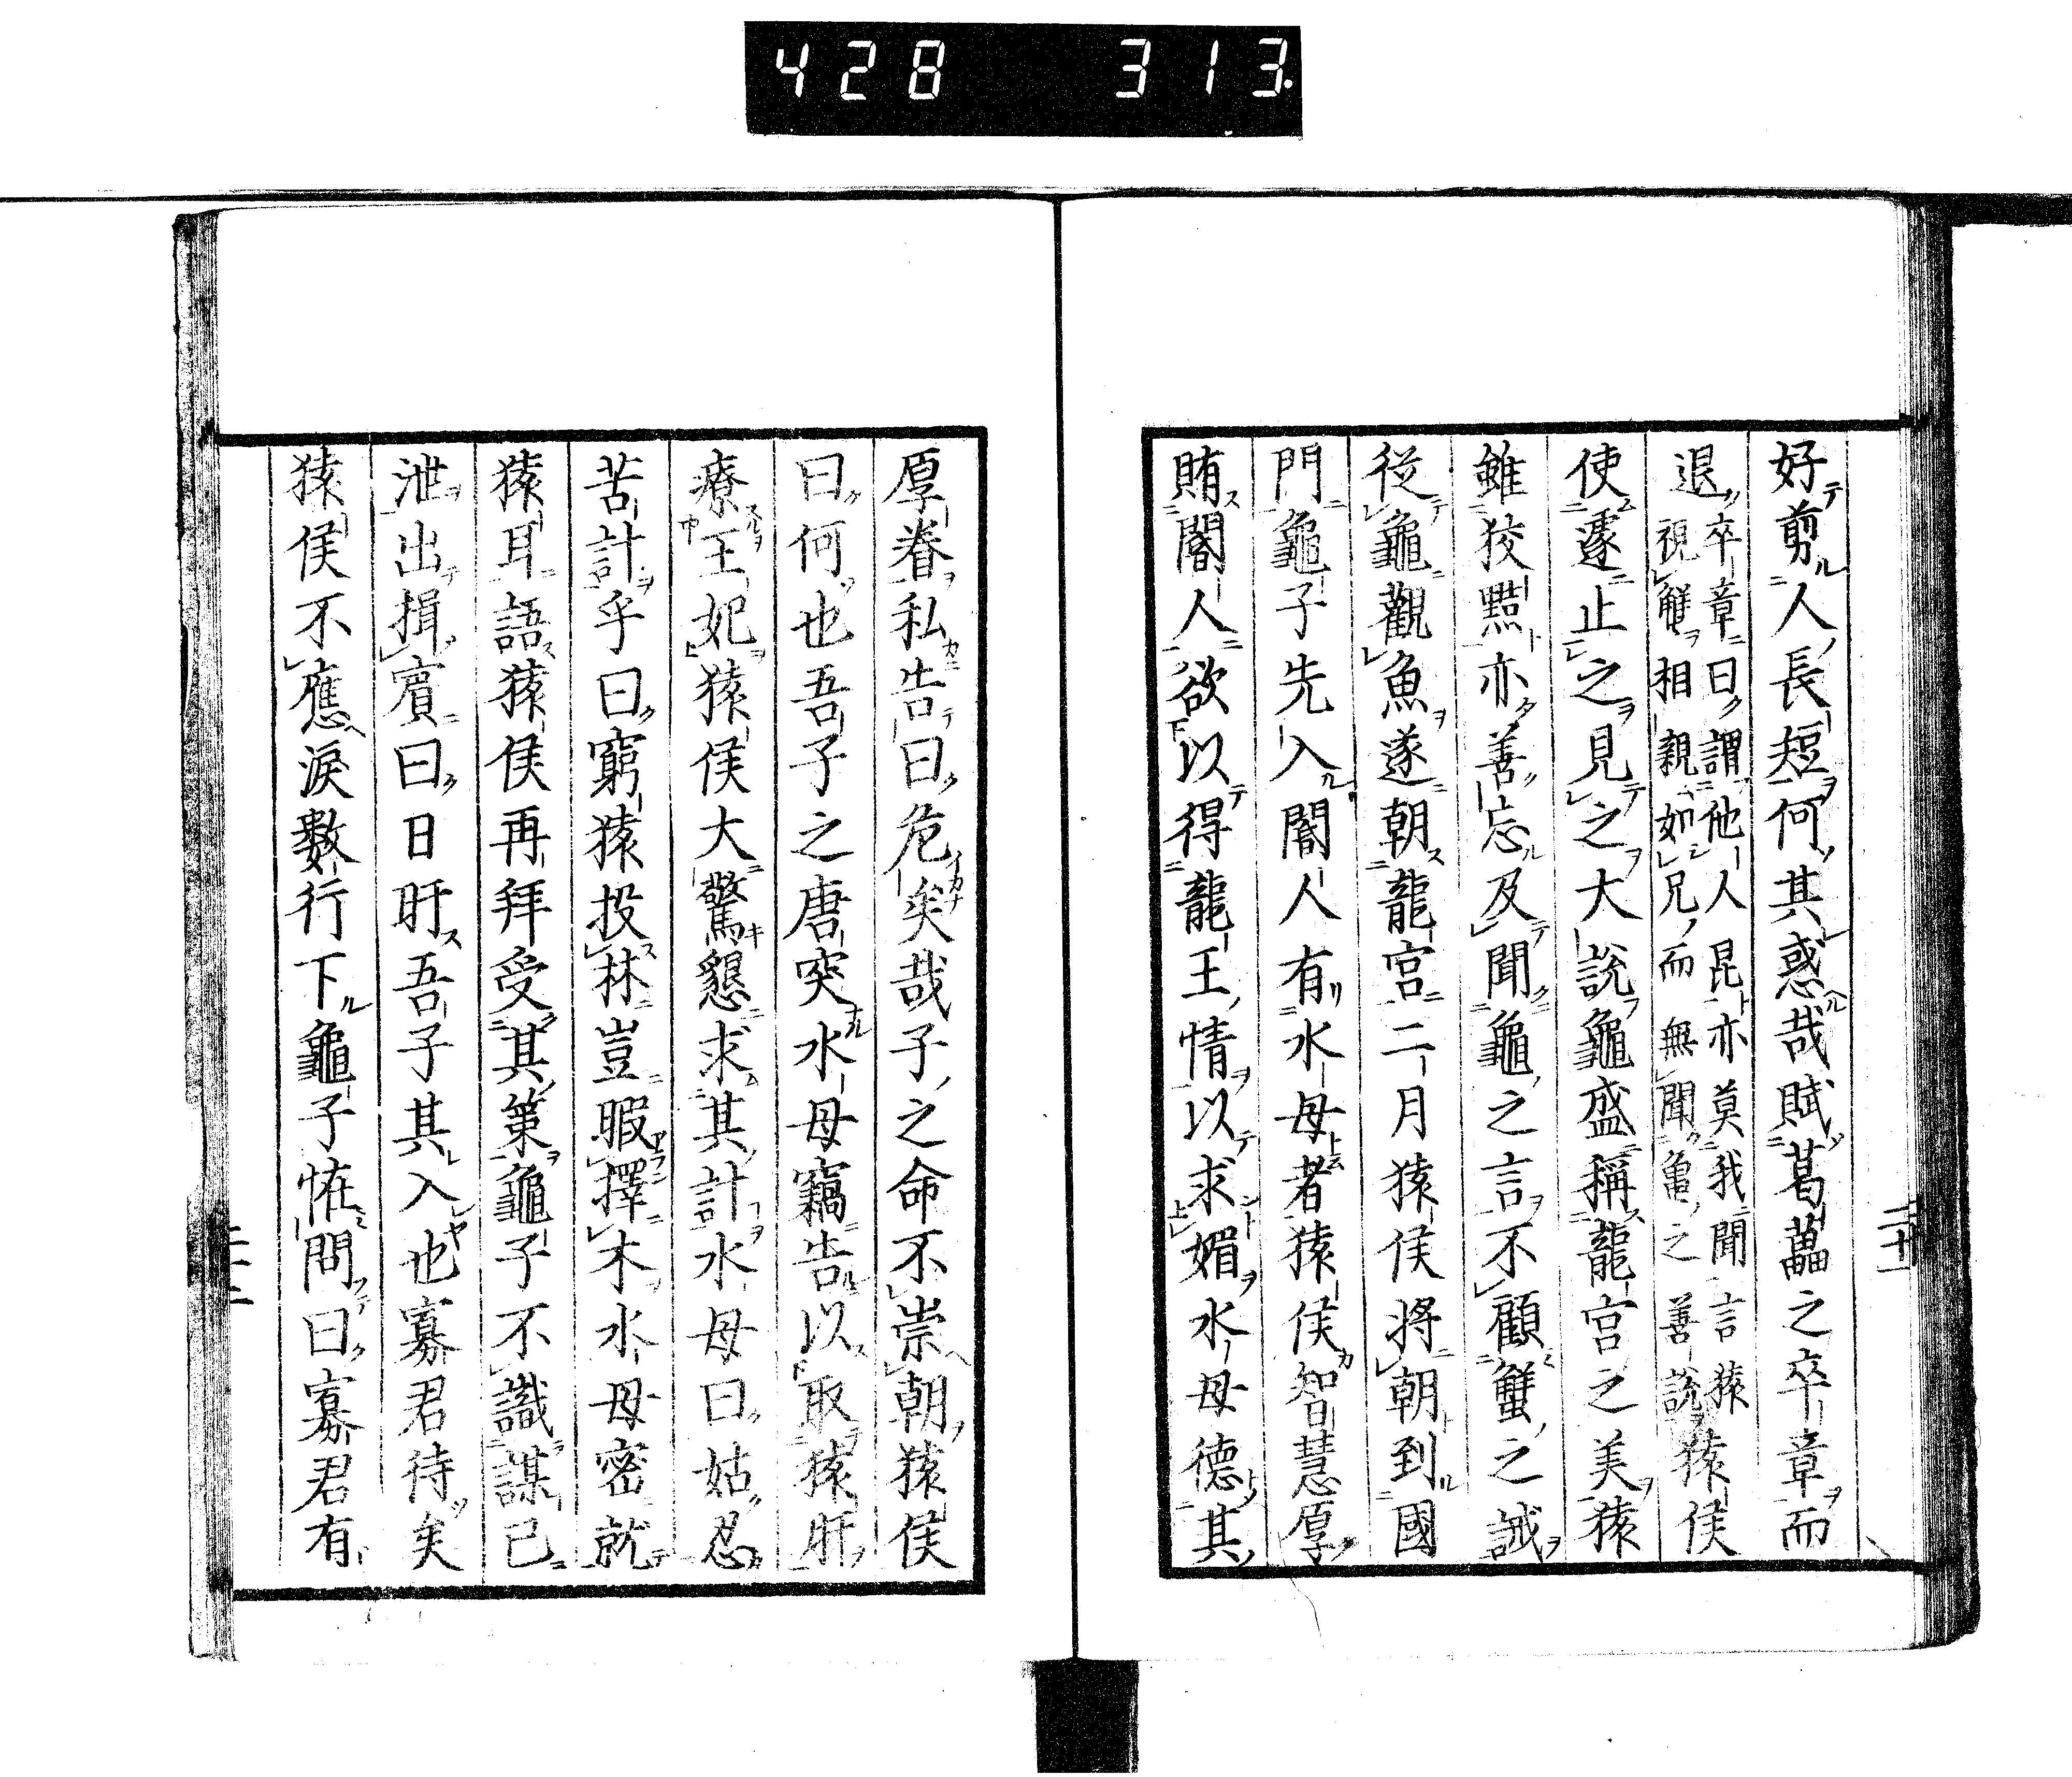 428 313
好剪人長短何其惑哉賦葛藟之卒章而
退卒章曰謂他人昆亦莫我聞言猿
視蟹相親如兄而無聞亀之善說猿侯
使遂止之見之大說龜盛稱龍宮之美猿
雖狡黠亦善忘及聞龜之言不顧蟹之誡
從龜觀魚遂朝龍宮二月猿侯將朝到國
門龜子先入閽人有水母者猿侯智慧厚
賄閽人欲以得龍王情以求媚水母德其
二十一
厚眷私告曰危矣哉子之命不崇朝猿侯
曰何也吾子之唐突水母竊告以取猿肝
療王妃猿侯大驚懇求其計水母曰姑忍
苦計乎曰窮猿投林豈暇擇木水母密就
猿耳語猿侯再拜受其策龜子不識謀已
泄出揖賓曰日旰吾子其入也寡君待矣
猿侯不應淚數行下龜子恠問曰寡君有